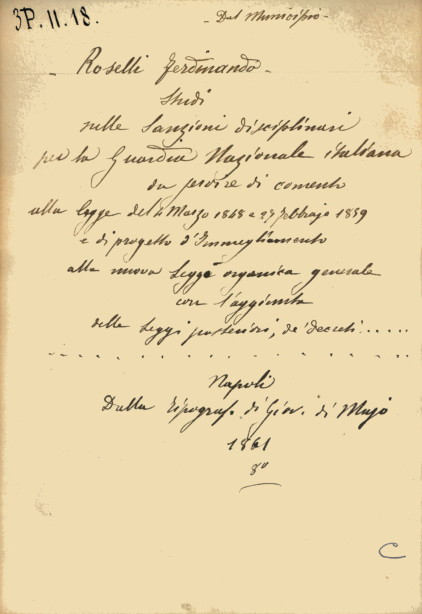 3P. 11. 18.
- Dal Municipio -
- Roselli Ferdinando -
Studi
sulle Sanzioni disciplinari
per la Guardia Nazionale italiana
da servire di comento
alla legge del 4 Marzo 1848 e 27 febbrajo 1859
e di progetto d'Immegliamento
alla nuova Legge organica generale
con l'aggiunta
delle Leggi posteriori, de' decreti.....
Napoli
Dalla Tipograf. di Giov. di Majo
1861
8º
C